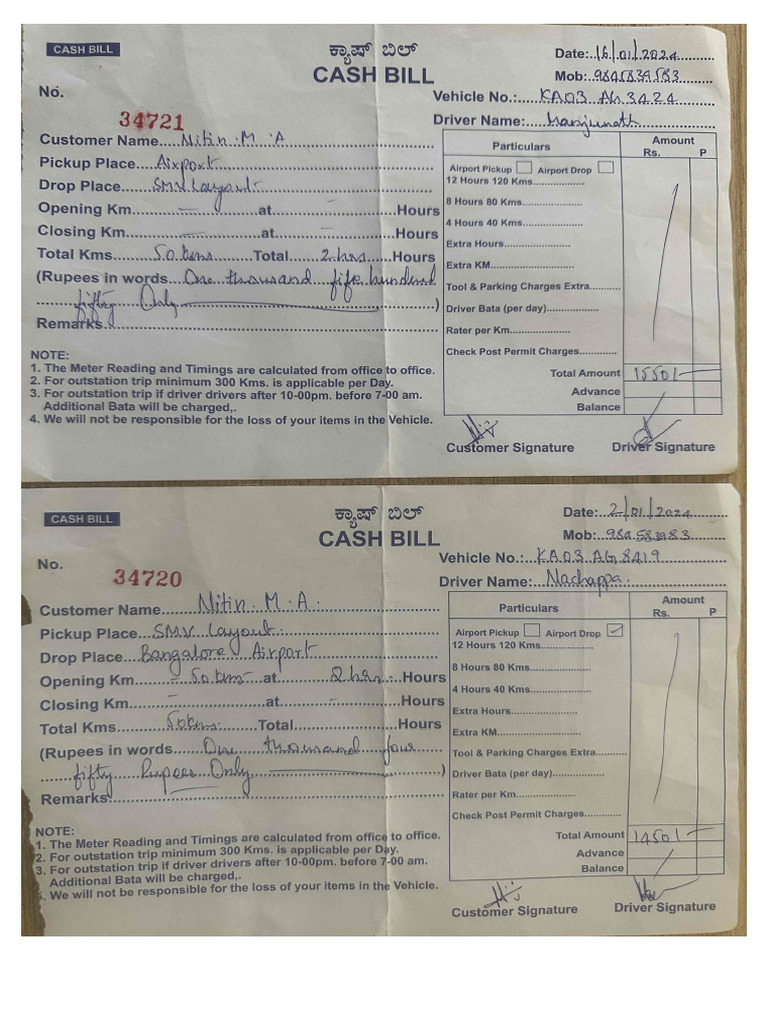 CASH BILL
ಕ್ಯಾಷ್ ಬಿಲ್
CASH BILL
Date:..16/01/2024
Mob:..9845839583
No.
34721
Vehicle No.:.....KA03 AG 3424
Driver Name:..Manjunath
Customer Name....Nitin. M. A
Pickup Place....Airport
Drop Place....SMV Layout
Opening Km.....–.....at.....–.....Hours
Closing Km.....–.....at.....–.....Hours
Total Kms.....50 kms.....Total.....2 hrs.....Hours
(Rupees in words...One thousand fife hundred
fifty Only)
Remarks
Particulars Amount
Rs. P
Airport Pickup Airport Drop
12 Hours 120 Kms.................
8 Hours 80 Kms......................
4 Hours 40 Kms......................
Extra Hours......................
Extra KM..........................
Tool & Parking Charges Extra..........
Driver Bata (per day).................
Rater per Km........................
Check Post Permit Charges............
Total Amount 1550/-
Advance
Balance
NOTE:
1. The Meter Reading and Timings are calculated from office to office.
2. For outstation trip minimum 300 Kms. is applicable per Day.
3. For outstation trip if driver drivers after 10-00pm. before 7-00 am.
Additional Bata will be charged,.
4. We will not be responsible for the loss of your items in the Vehicle.
Customer Signature Driver Signature
CASH BILL
ಕ್ಯಾಷ್ ಬಿಲ್
CASH BILL
Date:.....2/01/2024
Mob:...984583983
No.
34720
Vehicle No.:...KA03 AG 8419
Driver Name:...Nachappa.
Customer Name.........Nitin. M. A.
Pickup Place....SMV Layout
Drop Place...Bangalore Airport
Opening Km....–50 kms....at.....2 hrs.....Hours
Closing Km.....–.....at.....–.....Hours
Total Kms.....50 kms.....Total.....Hours
(Rupees in words.....One thousand four
fifty Rupees Only)
Remarks
Particulars Amount
Rs. P
Airport Pickup Airport Drop ✓
12 Hours 120 Kms.................
8 Hours 80 Kms......................
4 Hours 40 Kms......................
Extra Hours......................
Extra KM..........................
Tool & Parking Charges Extra..........
Driver Bata (per day).................
Rater per Km........................
Check Post Permit Charges............
Total Amount 1450/-
Advance
Balance
NOTE:
1. The Meter Reading and Timings are calculated from office to office.
2. For outstation trip minimum 300 Kms. is applicable per Day.
3. For outstation trip if driver drivers after 10-00pm. before 7-00 am.
Additional Bata will be charged,.
5. We will not be responsible for the loss of your items in the Vehicle.
Customer Signature Driver Signature